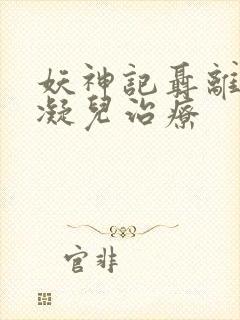 妖神記聶離
凝兒治療
官非